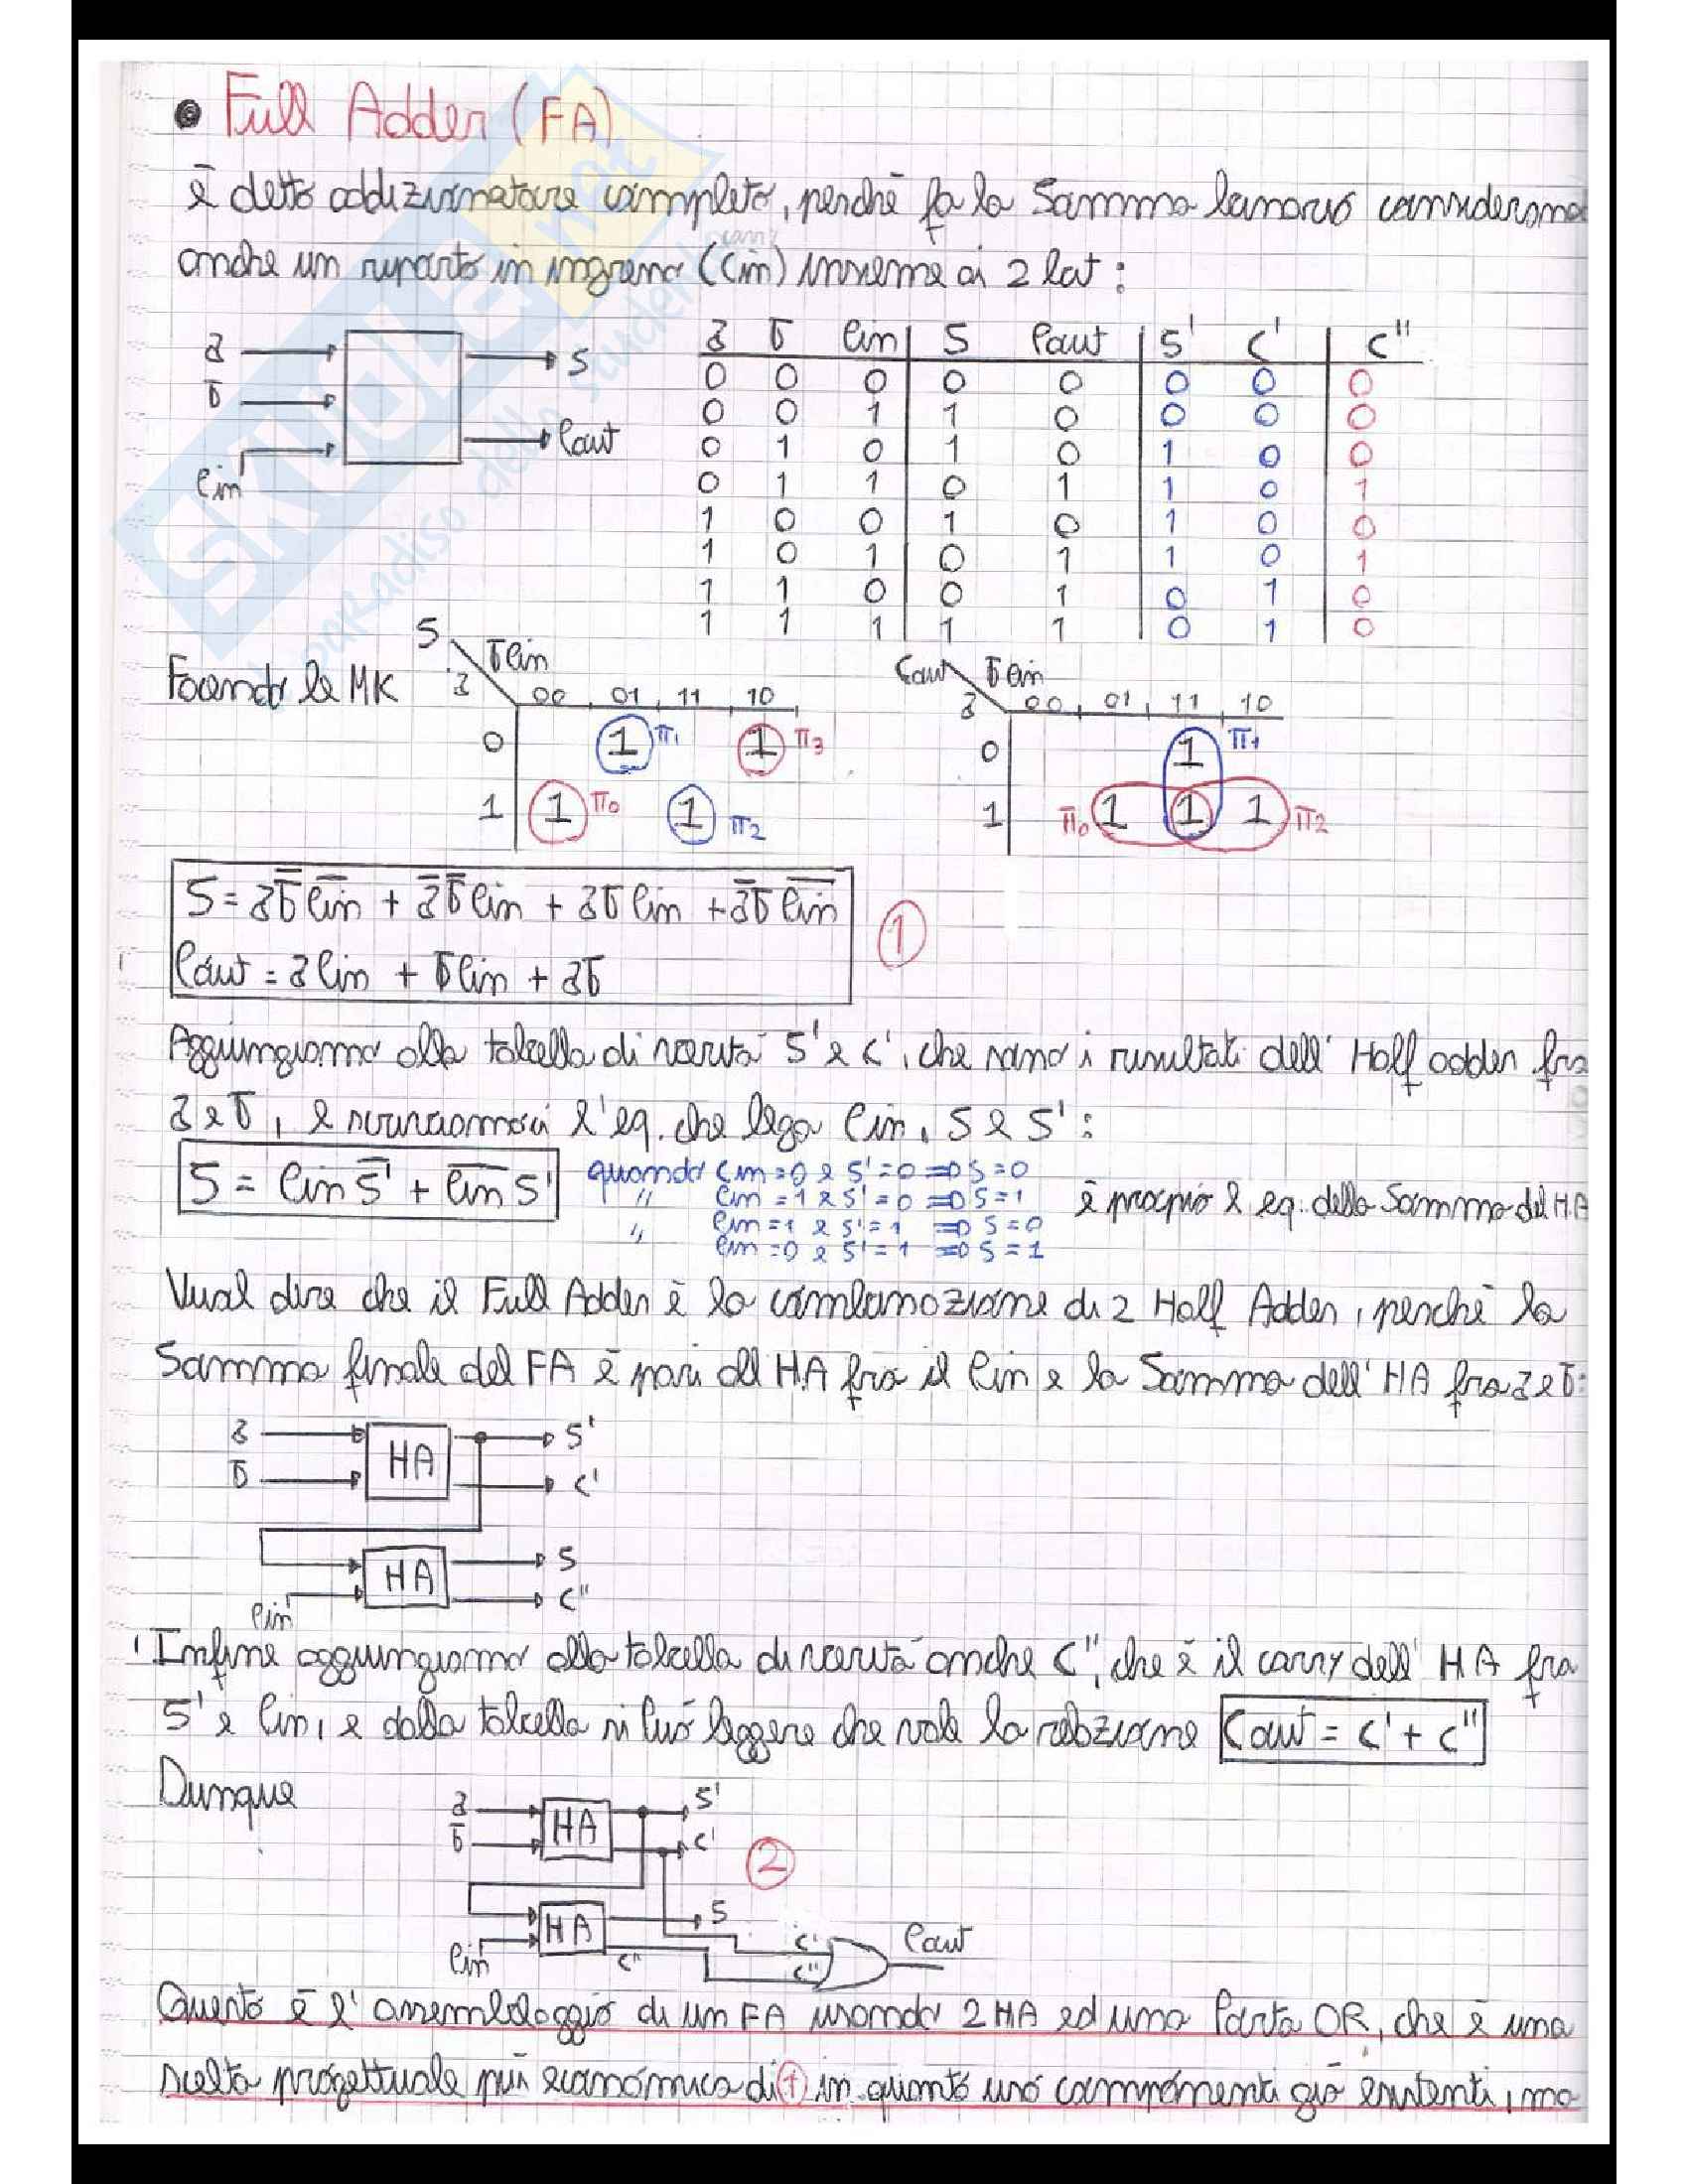 • Full Adder (FA)
è detto addizionatore completo, perchè fa la Somma binaria consideramo
carry
anche un riporto in ingresso (Cin) insieme ai 2 bit:
a
b
Cin
S
Cout
a b Cin S Cout S' C' C"
0 0 0 0 0 0 0 0
0 0 1 1 0 0 0 0
0 1 0 1 0 1 0 0
0 1 1 0 1 1 0 1
1 0 0 1 0 1 0 0
1 0 1 0 1 1 0 1
1 1 0 0 1 0 1 0
1 1 1 1 1 0 1 0
Facendo le MK
S bCin
a 00 01 11 10
0 1 π₁ 1 π₃
1 1 π₀ 1 π₂
Cout bCin
a 00 01 11 10
0 1 π₁
1 π₀ 1 1 1 π₂
S = ab̅C̅i̅n̅ + a̅b̅Cin + abCin + a̅bC̅i̅n̅
Cout = aCin + bCin + ab
1
Aggiungiamo alla tabella di verità S' e C', che sono i risultati dell' Half adder fra
a e b, e scriviamoci l'eq. che lega Cin, S e S':
S = Cin S̅' + C̅i̅n̅ S'
quando Cin=0 e S'=0 => S=0
" Cin=1 e S'=0 => S=1
Cin=1 e S'=1 => S=0
" Cin=0 e S'=1 => S=1
è proprio l eq. della Somma del HA
Vuol dire che il Full Adder è la combinazione di 2 Half Adder, perchè la
Somma finale del FA è pari all HA fra il Cin e la Somma dell' HA fra a e b:
a
b
HA
S'
C'
HA
S
C"
Cin
Infine aggiungiamo alla tabella di verità anche C", che è il carry dell' HA fra
S' e Cin, e dalla tabella si può leggere che vale la relazione Cout = C' + C"
Dunque
a
b
HA
S'
C'
2
HA
S
Cin
C"
C'
C"
Cout
Questo è l' assemblaggio di un FA usando 2 HA ed una Porta OR, che è una
scelta progettuale più economica di 1 in quanto uso componenti già esistenti, ma
SKUOLA.net
il paradiso dello studente